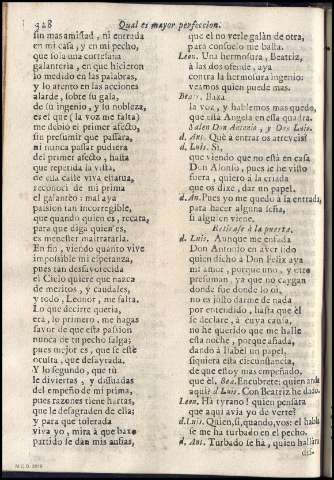 328 Qual es mayor perfeccion.
sin mas amistad, ni entrada
en mi casa, y en mi pecho,
que sola una cortesana
galanteria, en que hicieron
lo medido en las palabras,
y lo atento en las acciones
alarde, sobre su gala,
de su ingenio, y su nobleza,
es el que (la voz me falta)
me debio el primer afecto,
sin presumir que passára,
ni nunca passar pudiera
del primer afecto, hasta
que repetida la vista,
de essa calle viva estatua,
reconocì de mi prima
el galanteo: mal aya
passion tan incorregible,
que quando quien es, recata,
para que diga quien es,
es menester maltratarla.
En fin, viendo quanto vive
impossible mi esperanza,
pues tan desfavorecida
el Cielo quiere que nazca
de meritos, y caudales,
y todo, Leonor, me falta.
Lo que decirte queria,
era, lo primero, me hagas
favor de que esta passion
nunca de tu pecho salga;
pues mejor es, que se estè
oculta, que desayrada.
Y lo segundo, que tù
le diviertas, y disuadas
del empeño de mi prima,
pues razones tiene hartas,
que le desagraden de ella;
y para que tolerada
viva yo, mira à què baxo
partido se dan mis ansias,
que el no verle galàn de otra,
para consuelo me basta.
Leon. Una hermosura, Beatriz,
à las dos ofende, aya
contra la hermosura ingenio:
veamos quien puede mas.
Beat. Baxa
la voz, y hablemos mas quedo,
que està Angela en essa quadra.
Salen Don Antonio, y Don Luis.
d. Ant. Què à entrar os atreveis?
d. Luis. Si,
que viendo que no està en casa
Don Alonso, pues se ha visto
fuera, quiero à la criada
que os dixe, dar un papel.
d. An. Pues yo me quedo à la entrada,
para hacer alguna seña,
si alguien viene.
Retirase à la puerta.
d. Luis. Aunque me enfada
Don Antonio en aver sido
quien dicho à Don Felix aya
mi amor, porque uno, y otro
presuman, ya que no caygan
donde fue donde lo oì,
no es justo darme de nada
por entendido, hasta que èl
le declare, à cuya causa,
no he querido que me halle
esta noche, porque añada,
dando à Isabel un papel,
siquiera esta circunstancia,
de que estoy mas empeñado,
que èl. Bea. Encubrete: quien anda
aqui? d Luis. Con Beatriz he dado.
Leon. Hà tyrano! quien pensàra
que aqui avia yo de verte?
d. Luis. Quien, si, quando, vos: el habla
se me ha turbado en el pecho.
d. Ant. Turbado se hà, quien hallàra
dis-